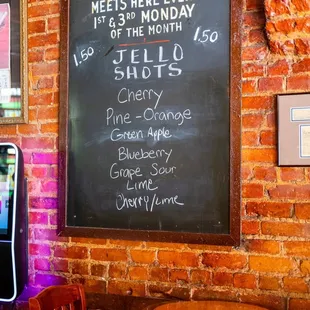 MEETS HERE EVERY
1ST & 3RD MONDAY
OF THE MONTH
1.50
JELLO
1.50
SHOTS
Cherry
Pine-Orange
Green Apple
Blueberry
Grape Sour
Lime
Cherry/Lime